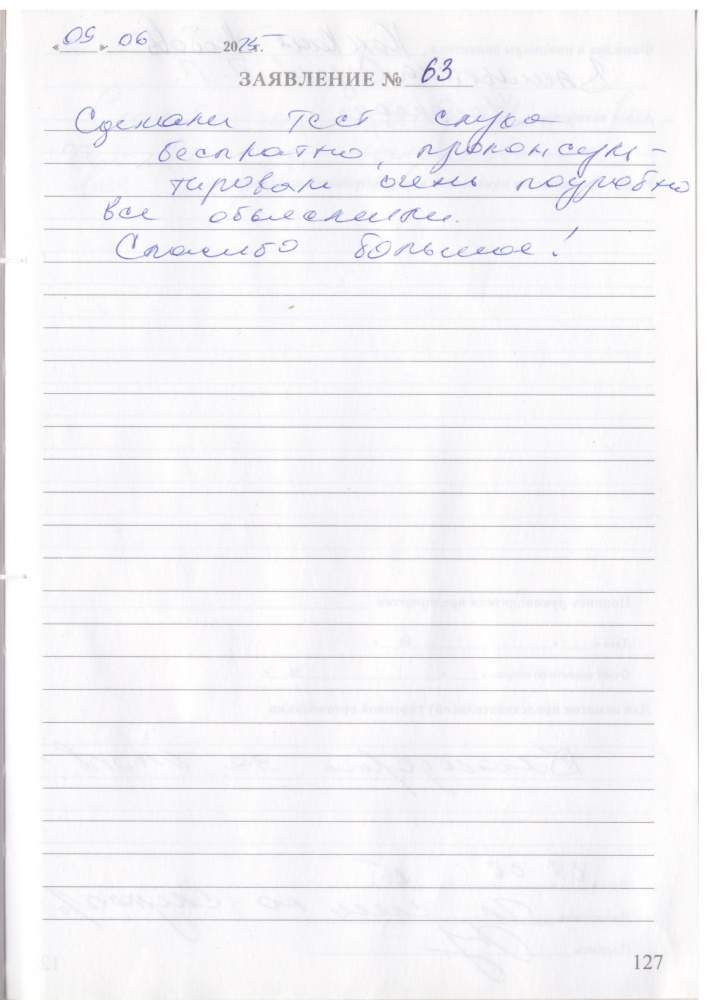 «05» 06 2025г.
ЗАЯВЛЕНИЕ № 63
Сделали тест слуха
бесплатно, проконсуль-
тировали очень подробно
все объяснили.
Спасибо большое!
127